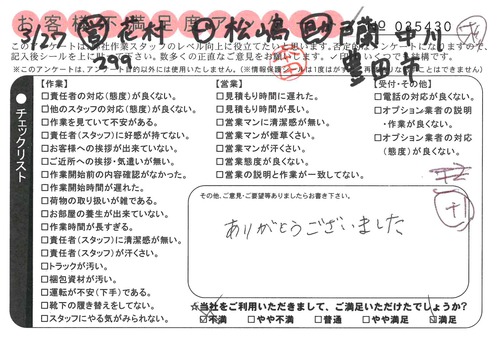 お客様不満足度ア
No 085430
3/27 営 花村 松嶋 戸蘭 中川
299 豊田市
このアンケートは弊社作業スタッフのレベル向上に役立てたいと思います。否定的なアンケートになりますので、
記入後シールを上に貼って下さい。数多くの正直なご意見をお願いします。
※このアンケートは、アンケート目的以外には使用いたしません。
チェックリスト
【作業】
□責任者の対応(態度)が良くない。
□他のスタッフの対応(態度)が良くない。
□作業を見ていて不安がある。
□責任者(スタッフ)に好感が持てない。
□お客様への挨拶が出来ていない。
□ご近所への挨拶・気遣いが無い。
□作業開始前の内容確認がなかった。
□作業開始時間が遅れた。
□荷物の取り扱いが雑である。
□お部屋の養生が出来ていない。
□作業時間が長すぎる。
□責任者(スタッフ)に清潔感が無い。
□責任者(スタッフ)が汗くさい。
□トラックが汚い。
□梱包資材が汚い。
□運転が不安(下手)である。
□靴下の履き替えをしてない。
□スタッフにやる気がみられない。
【営業】
□見積もり時間に遅れた。
□見積もり時間が長い。
□営業マンに清潔感が無い。
□営業マンが煙草くさい。
□営業マンが汗くさい。
□営業態度が良くない。
□営業の説明と作業が一致してない。
【受付・その他】
□電話の対応が良くない。
□オプション業者の説明
・作業が良くない。
□オプション業者の対応
(態度)が良くない。
+2
+1
その他、ご意見・ご要望等ありましたらお書き下さい。
ありがとうございました
☆当社をご利用いただきまして、ご満足いただけたでしょうか?
□不満 □やや不満 □普通 □やや満足 ☑満足